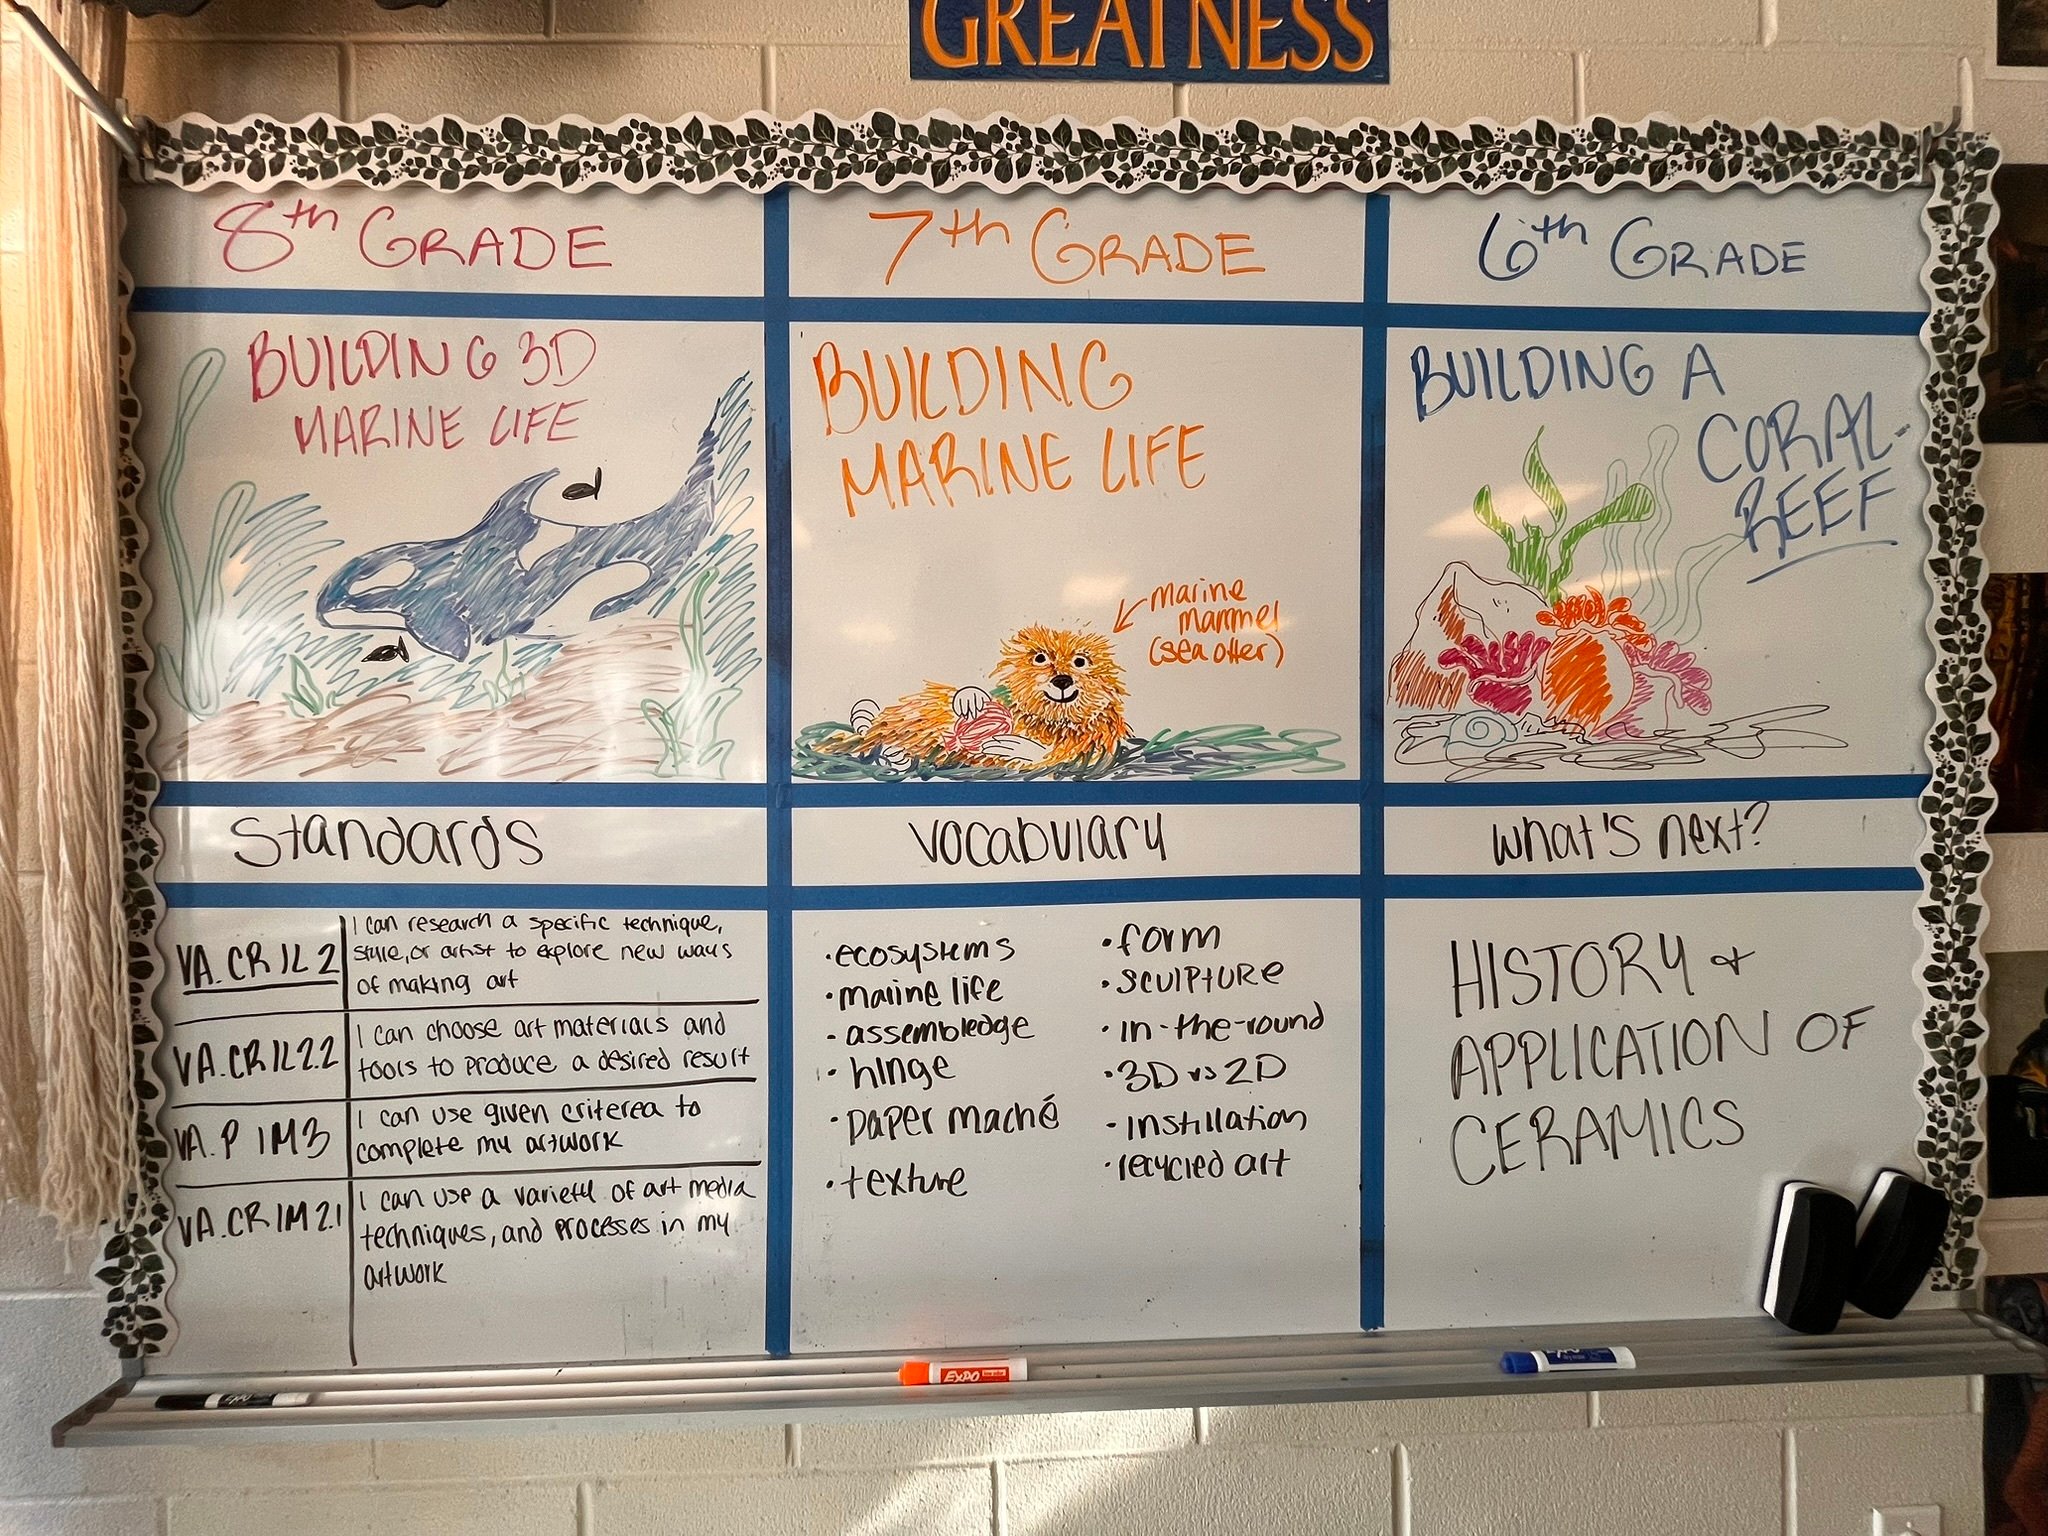 GREATNESS
8th GRADE
7th GRADE
6th GRADE
BUILDING 3D
MARINE LIFE
BUILDING
MARINE LIFE
marine
mammel
(sea otter)
BUILDING A
CORAL
REEF
Standards
VA.CR1L2
I can research a specific technique,
style, or artist to explore new ways
of making art
VA.CR1L2.2
I can choose art materials and
tools to produce a desired result
VA.P1M3
I can use given criterea to
complete my artwork
VA.CR1M2.1
I can use a variety of art media
techniques, and processes in my
artwork
Vocabulary
• ecosystems
• marine life
• assembledge
• hinge
• paper maché
• texture
• form
• sculpture
• in-the-round
• 3D vs 2D
• instillation
• recycled art
What's next?
HISTORY +
APPLICATION OF
CERAMICS
EXPO
EXPO
EXPO